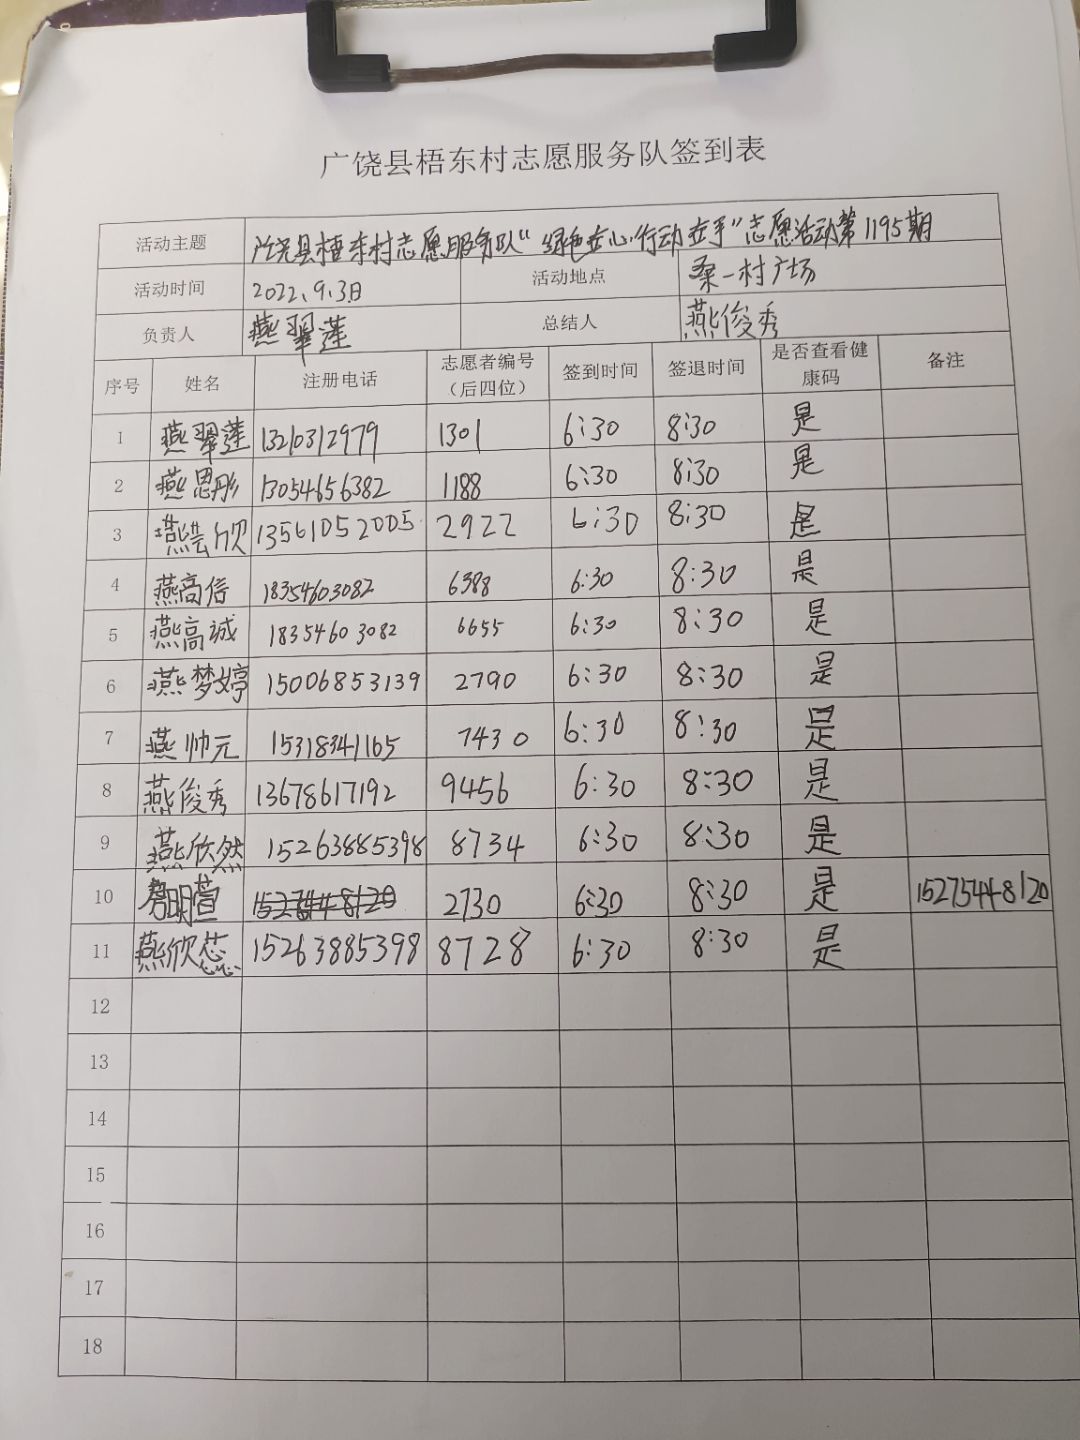 广饶县梧东村志愿服务队签到表
活动主题 广饶县梧东村志愿服务队“绿色在心·行动在手”志愿活动第1195期
活动时间 2022.9.3日 活动地点 桑一村广场
负责人 燕翠莲 总结人 燕俊秀
序号 姓名 注册电话 志愿者编号（后四位） 签到时间 签退时间 是否查看健康码 备注
1 燕翠莲 13210312979 1301 6:30 8:30 是
2 燕思彤 13054656382 1188 6:30 8:30 是
3 燕芸欣 13561052005 2922 6:30 8:30 是
4 燕高信 18354603082 6388 6:30 8:30 是
5 燕高诚 18354603082 6655 6:30 8:30 是
6 燕梦婷 15006853139 2790 6:30 8:30 是
7 燕帅元 15318341165 7430 6:30 8:30 是
8 燕俊秀 13678617192 9456 6:30 8:30 是
9 燕欣然 15263885398 8734 6:30 8:30 是
10 明萱 2730 6:30 8:30 是 15275448120
11 燕欣蕊 15263885398 8728 6:30 8:30 是
12
13
14
15
16
17
18